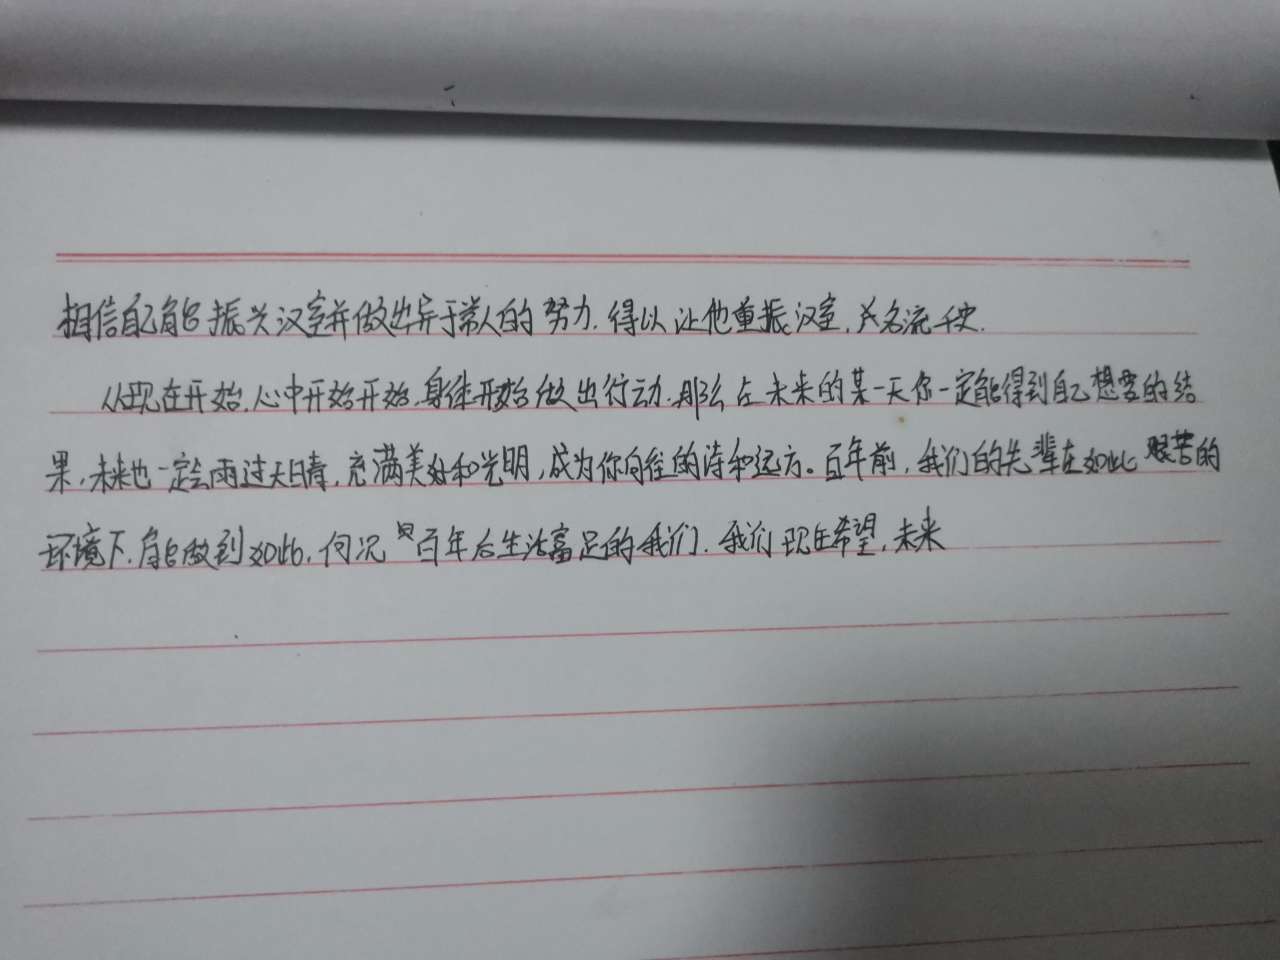 相信自己能振兴汉室并做出异于常人的努力.得以让他重振汉室,美名流千史.
从现在开始.心中开始开始.身体开始做出行动.那么在未来的某一天你一定能得到自己想要的结
果,未来也一定会雨过天晴,充满美好和光明,成为你向往的诗和远方。百年前,我们的先辈在如此艰苦的
环境下.能做到如此.何况是百年后生活富足的我们.我们现在希望,未来